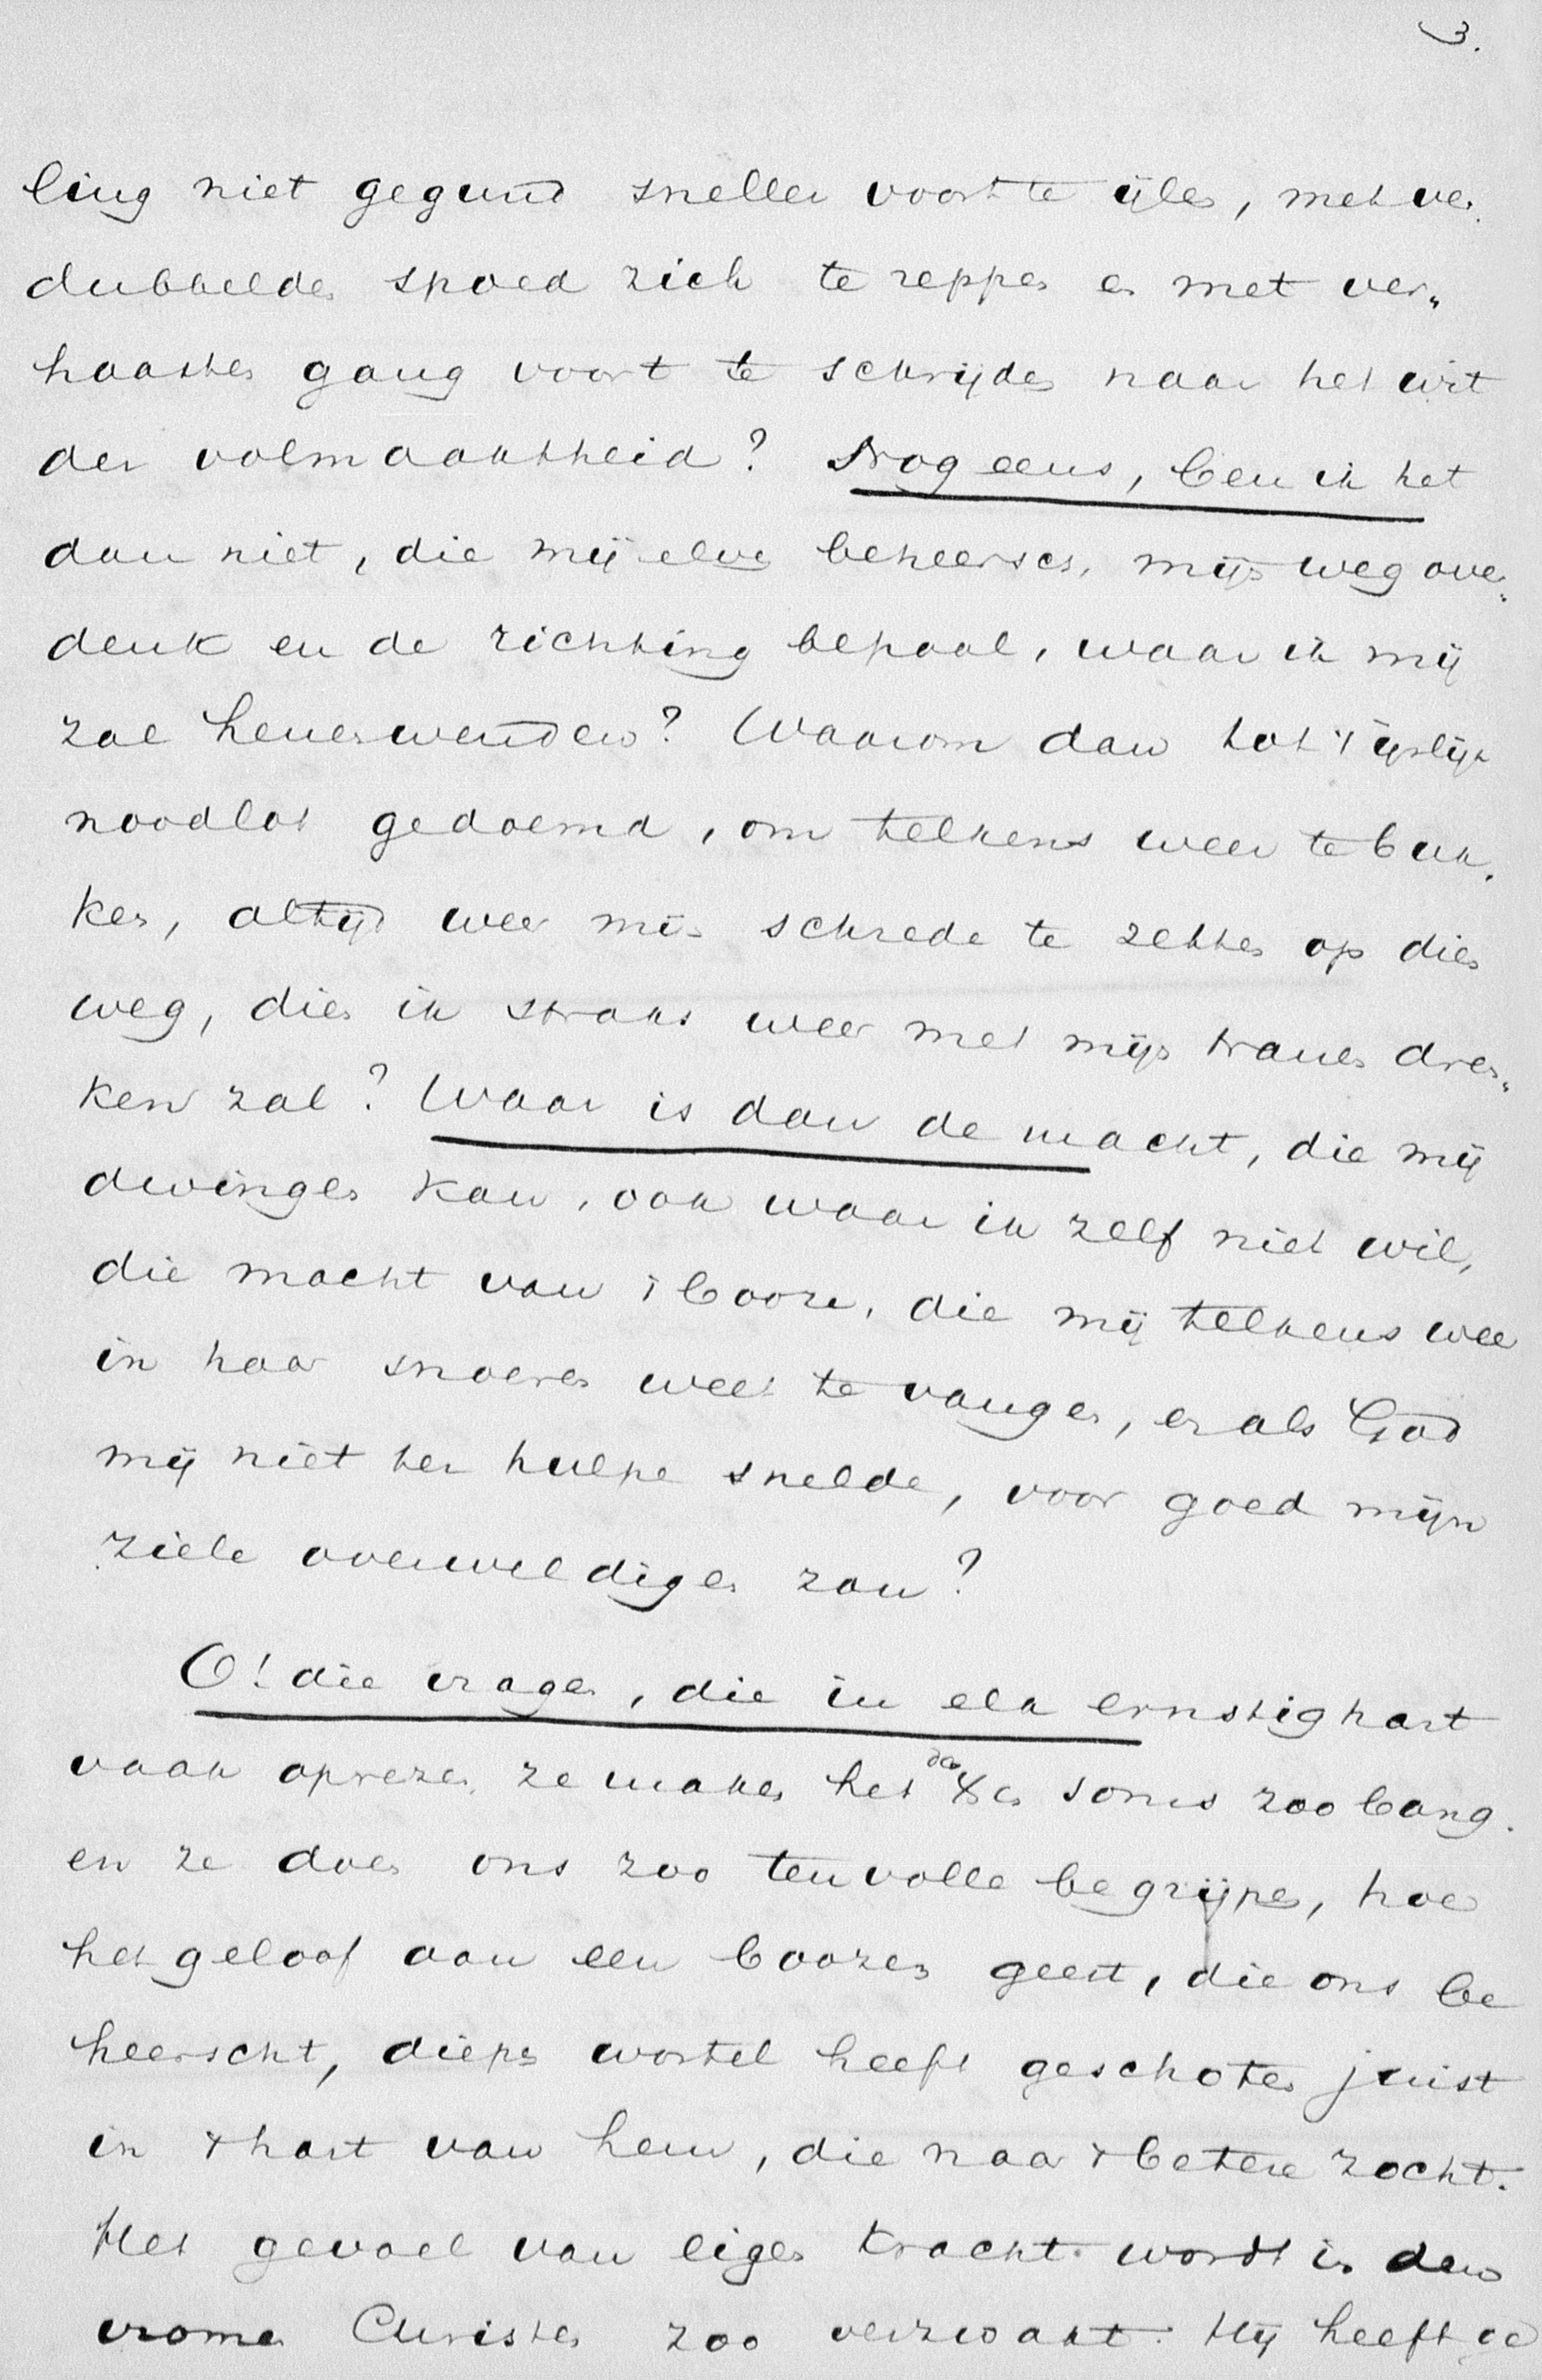 3.
ling niet gegund sneller voort te ijlen, met ver„
dubbelden spoed zich te reppen en met ver„
haasten gang voort te schrijden naar het wit
der volmaaktheid? Nog eens, ben ik het
dan niet, die mijzelve beheersch, mijn weg over„
denk en de richting bepaal, waar ik mij
zal henenwenden? Waarom dan tot 't ijslijk
noodlot gedoemd, om telkens weer te buk„
ken, altijd weer mijn schrede te zetten op dien
weg, dien ik straks weer met mijn tranen dren„
ken zal? Waar is dan de macht, die mij
dwingen kan, ook waar ik zelf niet wil,
die macht van 't booze, die mij telkens weer
in haar snoeren weet te vangen, en als God
mij niet ter hulpe snelde, voor goed mijn
ziele overweldigen zou?
O! die vragen, die in elk ernstig hart
vaak oprezen, ze maken het den soms zoo bang.
en ze doen ons zoo ten volle begrijpen, hoe
het geloof aan een boozen geest, die ons be
heerscht, diepen wortel heeft geschoten juist
in 't hart van hem, die naar 't betere zocht.
Het gevoel van eigen kracht wordt in den
vromen Christen zoo verzwakt. Hij heeft ge